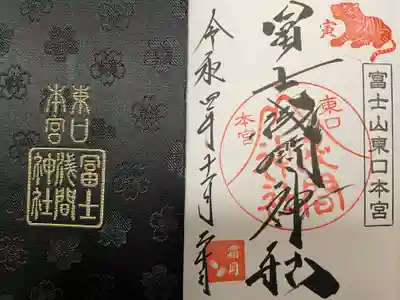 東口
本宮
冨士
浅間
神社
寅
冨士山東口本宮
冨士浅間神社
東口
本宮
令和四年十一月
霜月